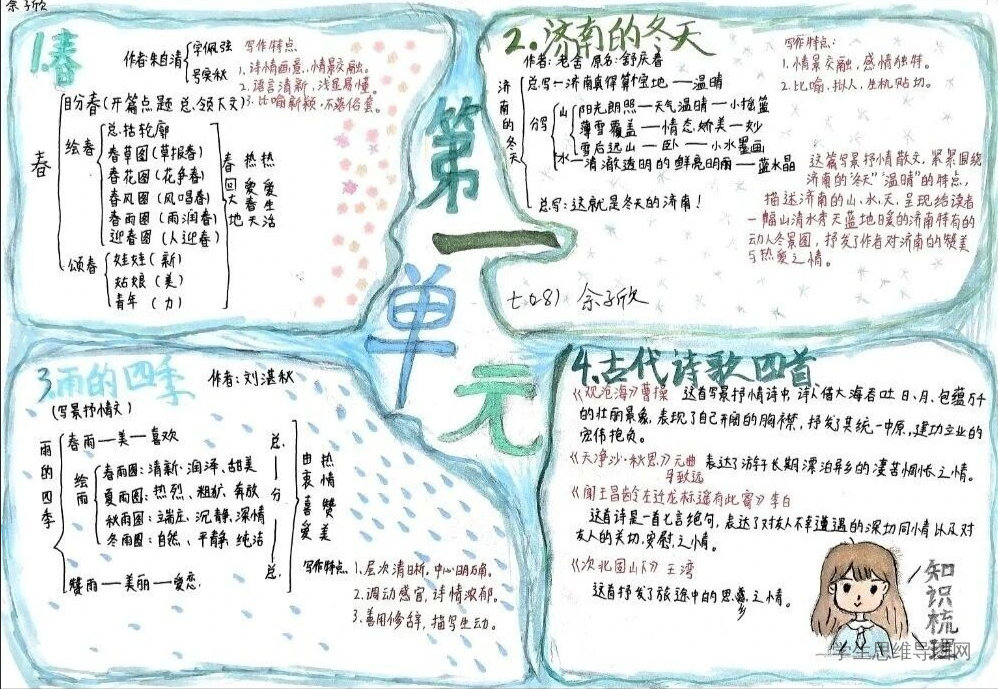 余子欣
1.春
作者:朱自清
字佩弦
号实秋
写作特点
1.诗情画意,情景交融。
2.语言清新,浅显易懂。
3.比喻新颖,不落俗套。
盼春(开篇点题 总领下文)
春
绘春
总括轮廓
春草图(草报春)
春花图(花争春)
春风图(风唱春)
春雨图(雨润春)
迎春图(人迎春)
颂春
娃娃(新)
姑娘(美)
青年(力)
春回大地
热爱春天
热爱生活
第一单元
七(8) 余子欣
2.济南的冬天
作者:老舍 原名:舒庆春
写作特点:
1.情景交融,感情独特。
2.比喻,拟人,生机贴切。
济南的冬天
总写—济南真得算个宝地—温晴
分写
山
阳光朗照—天气温晴—小摇篮
薄雪覆盖—情态娇美—妙
雪后远山—卧—小水墨画
水—清澈透明的鲜亮明丽—蓝水晶
总写:这就是冬天的济南!
这篇写景抒情散文,紧紧围绕
济南的“冬天”“温晴”的特点,
描述济南的山、水、天,呈现给读者
一幅山清水秀天蓝地暖的济南特有的
动人冬景图,抒发了作者对济南的赞美
与热爱之情。
3.雨的四季
作者:刘湛秋
(写景抒情文)
雨的四季
春雨—美—喜欢
绘雨
春雨图:清新、润泽、甜美
夏雨图:热烈、粗犷、奔放
秋雨图:端庄、沉静、深情
冬雨图:自然、平静、纯洁
赞雨—美丽—爱恋
总—分—总
由衷喜爱
热情赞美
写作特点
1.层次清晰,中心明确。
2.调动感官,诗情浓郁。
3.善用修辞,描写生动。
4.古代诗歌四首
《观沧海》曹操 这首写景抒情诗中,诗人借大海吞吐日、月、包蕴万千
的壮丽景象,表现了自己开阔的胸襟,抒发了其统一中原,建功立业的
宏伟抱负。
《天净沙·秋思》元曲 表达了游子长期漂泊异乡的凄苦惆怅之情。
马致远
《闻王昌龄左迁龙标遥有此寄》李白
这首诗是一首七言绝句,表达了对友人不幸遭遇的深切同情以及对
友人的关切,安慰之情。
《次北固山下》王湾
这首抒发了旅途中的思乡之情。
知识梳理
学生思维导图网